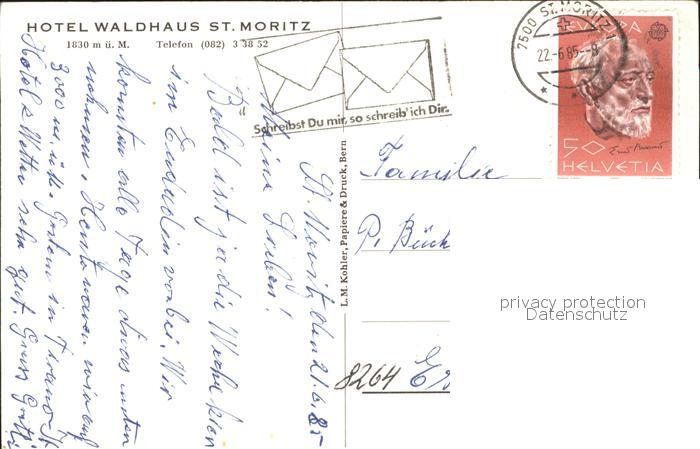 HOTEL WALDHAUS ST. MORITZ
1830 m ü. M. Telefon (082) 3 38 52
Schreibst Du mir, so schreib' ich Dir.
7500 ST. MORITZ
22.-6.85.--8
EUROPA
50
HELVETIA
L. M. Kohler, Papiere & Druck, Bern
St. Moritz, den 21.6.85
Meine Lieben!
Bald ist ja die Woche
im Engadin vorbei. Wir
konnten alle Tage etwas unter
nehmen. Heute waren wir auf
3000 m, Gestern in Tirano.
Hotel & Wetter sehr gut Gruss
Familie
P. Bück
8264
privacy protection
Datenschutz